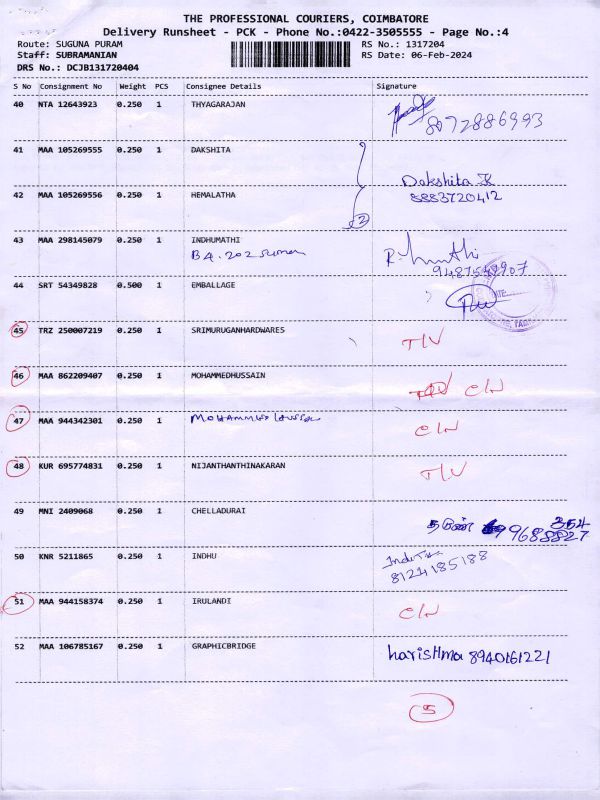 THE PROFESSIONAL COURIERS, COIMBATORE
Delivery Runsheet - PCK - Phone No.:0422-3505555 - Page No.:4
Route: SUGUNA PURAM RS No.: 1317204
Staff: SUBRAMANIAN RS Date: 06-Feb-2024
DRS No.: DCJB131720404
S No Consignment No Weight PCS Consignee Details Signature
40 NTA 12643923 0.250 1 THYAGARAJAN
8072886993
41 MAA 105269555 0.250 1 DAKSHITA
Dakshita
42 MAA 105269556 0.250 1 HEMALATHA 8883720412
2
43 MAA 298145079 0.250 1 INDHUMATHI
B4. 202
44 SRT 54349828 0.500 1 EMBALLAGE
45 TRZ 250007219 0.250 1 SRIMURUGANHARDWARES
46 MAA 862209407 0.250 1 MOHAMMEDHUSSAIN
47 MAA 944342301 0.250 1
48 KUR 695774831 0.250 1 NIJANTHANTHINAKARAN
49 MNI 2409068 0.250 1 CHELLADURAI
354
9688827
50 KNR 5211865 0.250 1 INDHU
8124185188
51 MAA 944158374 0.250 1 IRULANDI
52 MAA 106785167 0.250 1 GRAPHICBRIDGE harisHma 8940161221
5